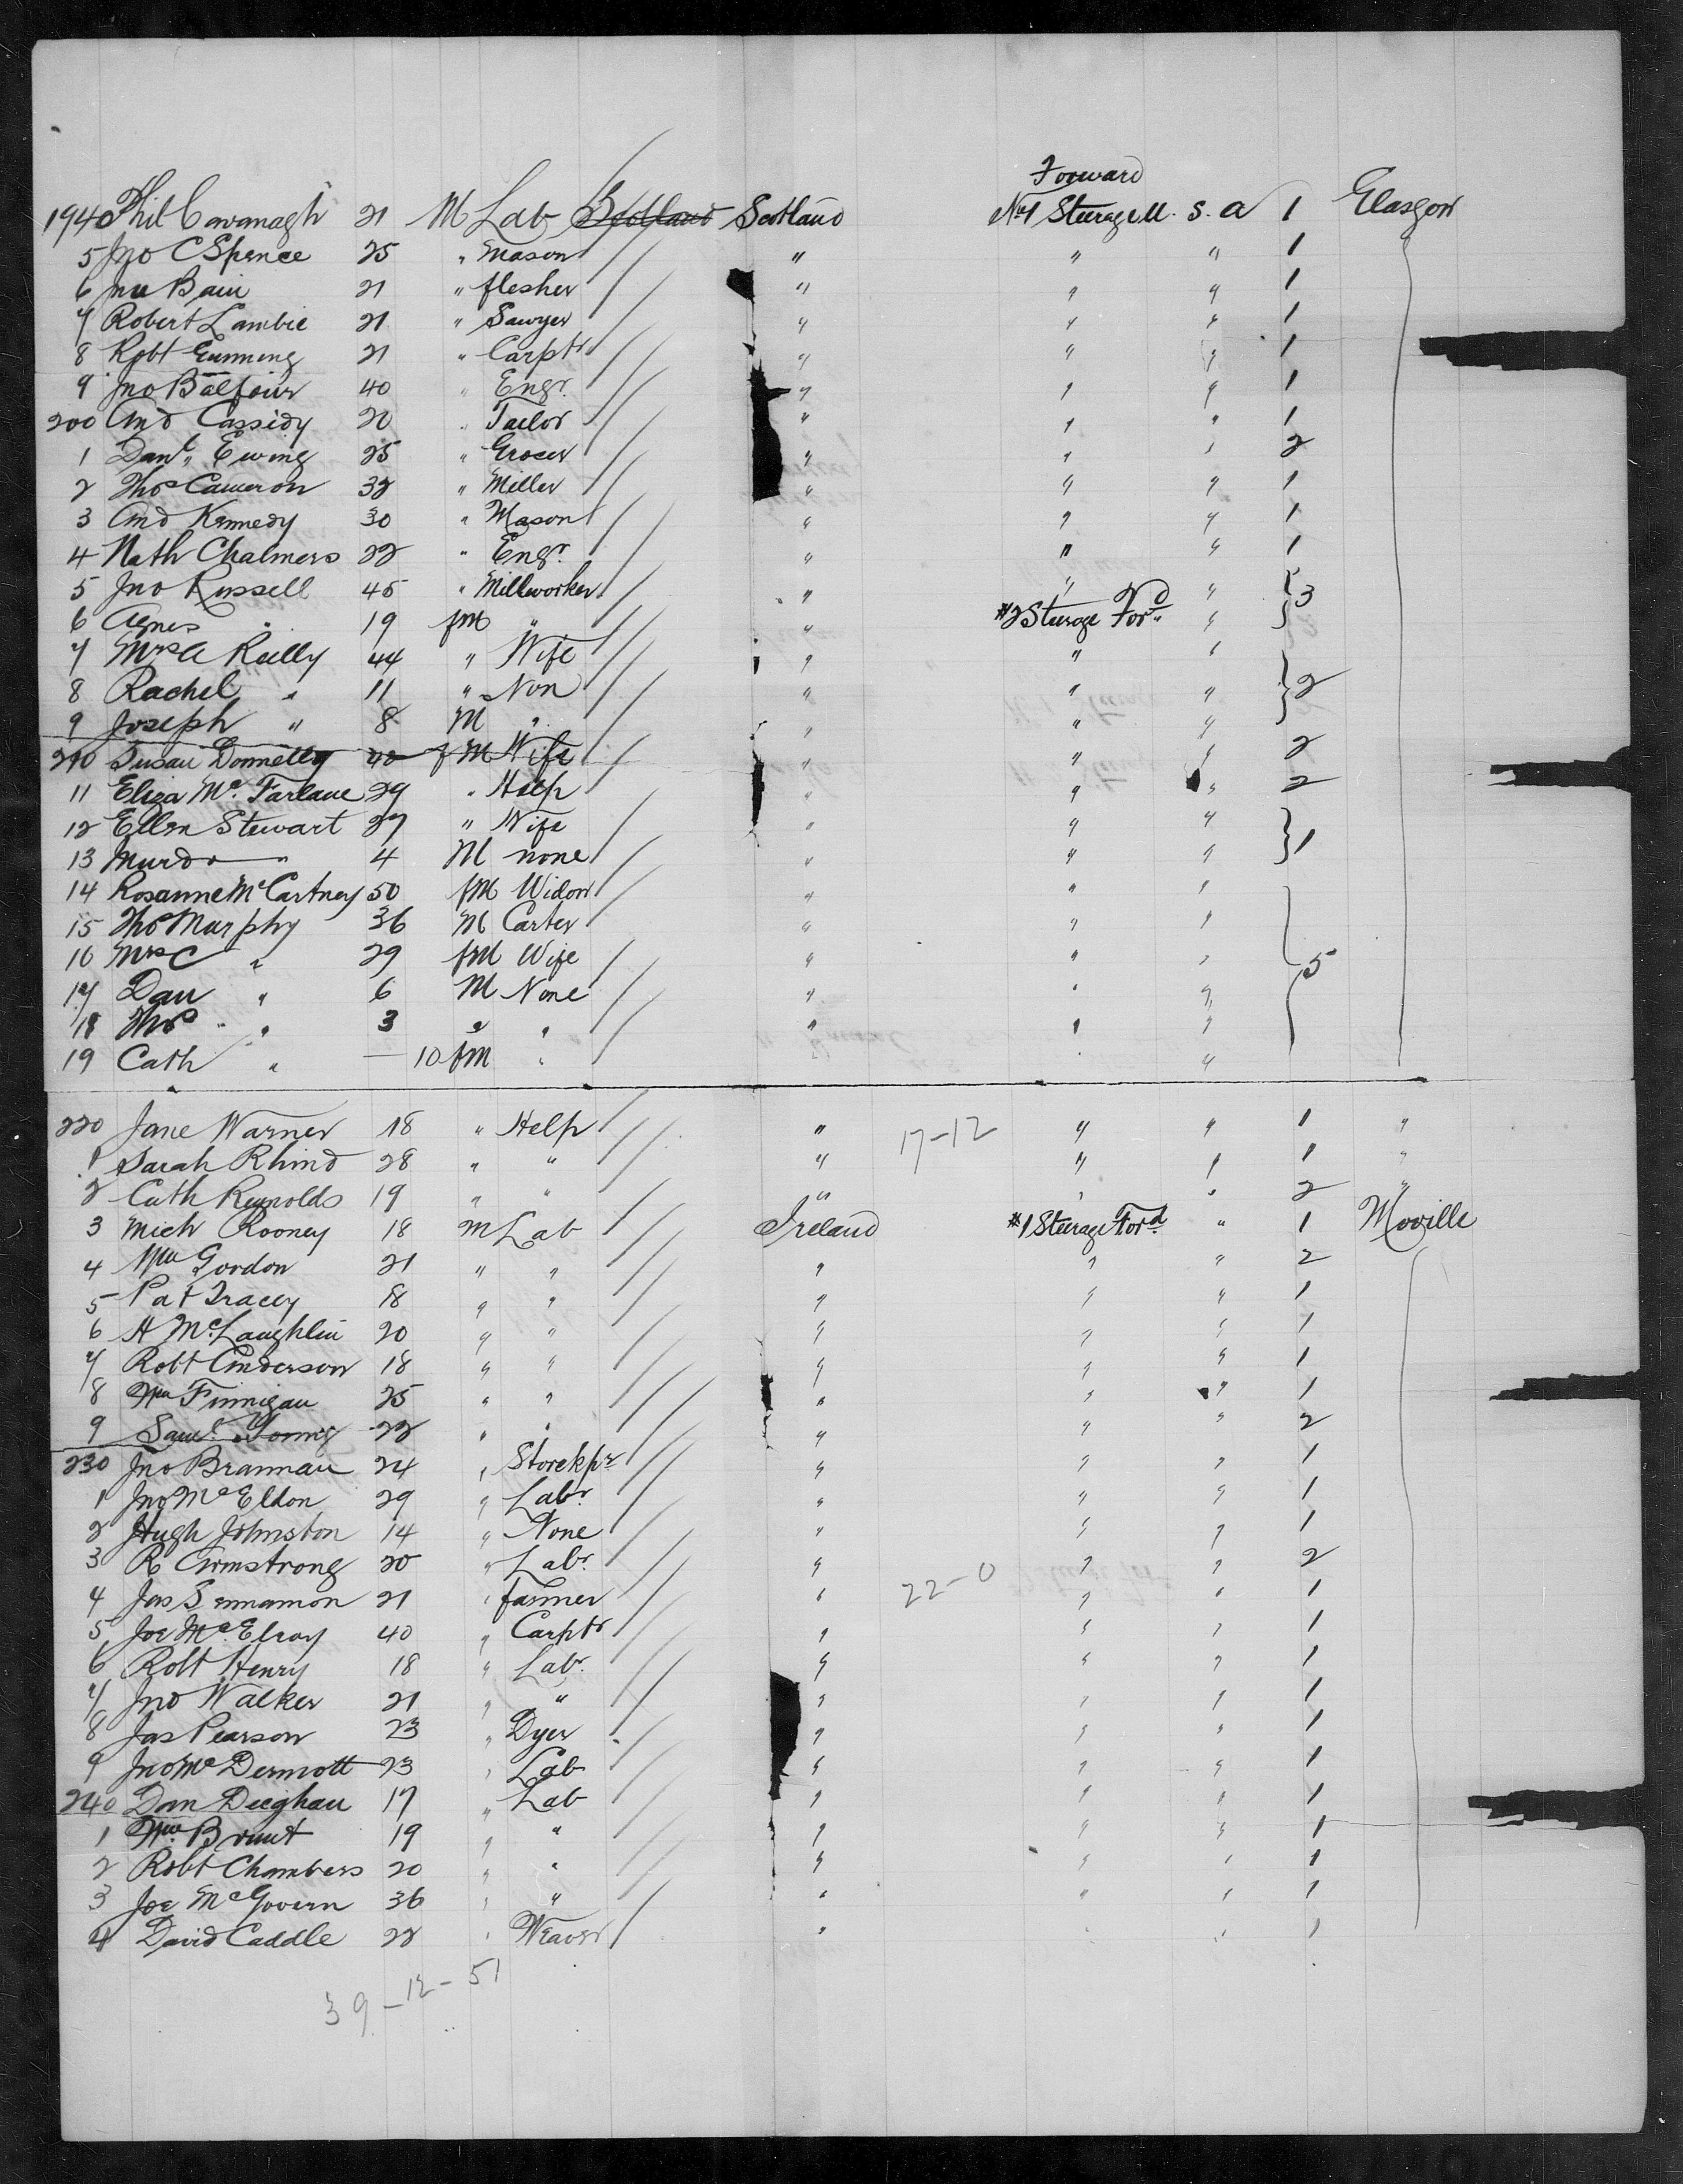 Forward
194 Phil Cavanagh 21 M Lab Scotland Scotland No 1 Steerage U. S. a 1 Glasgow
5 Jno C Spence 25 " Mason " " " 1
6 Jno Bain 21 " flesher " " " 1
7 Robert Lambie 21 " Sawyer " " " 1
8 Robt Gunning 21 " Carptr " " " 1
9 Jno Balfour 40 " Engr. " " " 1
200 And Cassidy 20 " Tailor " " " 1
1 Danl. Ewing 25 " Grocer " " " 2
2 Thos Cameron 32 " Miller " " " 1
3 And Kennedy 30 " Mason " " " 1
4 Nath Chalmers 22 " Engr. " " " 1
5 Jno Russell 45 " Millworker " " " 3
6 Agnes " 19 fM " " #2 Steerage Ford "
7 Mrs A Reilly 44 " Wife " " "
8 Rachel " 11 " Non " " " 2
9 Joseph " 8 M " " " "
210 Susan Donnelly 40 fM Wife " " " 2
11 Eliza Mc. Farlane 29 " Help " " " 2
12 Ellen Stewart 27 " Wife " " " 1
13 Murdo " 4 M none " " "
14 Rosanne McCartney 50 fM Widow " " "
15 Thos Murphy 36 M Carter " " "
16 Mrs C " 29 fM Wife " " " 5
17 Dan " 6 M None " " "
18 Thos " 3 " " " " "
19 Cath " — 10 fm " " "
220 Jane Warner 18 " Help " 17-12 " " 1 "
1 Sarah Rhind 28 " " " " " 1 "
2 Cath Reynolds 19 " " " " " 2 "
3 Mich Rooney 18 M Lab Ireland #1 Steerage Ford " 1 Moville
4 Wm Gordon 21 " " " " " 2
5 Pat Tracey 18 " " " " " 1
6 H McLaughlin 20 " " " " " 1
7 Robt Anderson 18 " " " " " 1
8 Wm Finnigan 25 " " " " " 1
9 Saml. Young 22 " " " " " 2
230 Jno Brannan 24 " Storekpr " " " 1
1 Jno Mc Eldon 29 " Labr " " " 1
2 Hugh Johnston 14 " None " " " 1
3 R Armstrong 20 " Labr. " " " 2
4 Jas Sennamon 21 " farmer " 22-0 " " 1
5 Joe Mc. Elroy 40 " Carptr " " " 1
6 Robt Henry 18 " Labr. " " " 1
7 Jno Walker 21 " " " " " 1
8 Jas Pearson 23 " Dyer " " " 1
9 Jno Mc Dermott 23 " Lab " " " 1
240 Dan Deeghan 17 " Lab " " " 1
1 Wm. 19 " " " " " 1
2 Robt Chambers 20 " " " " " 1
3 Joe McGovern 36 " " " " " 1
4 David Caddle 22 " Weaver " " " 1
39-12-51